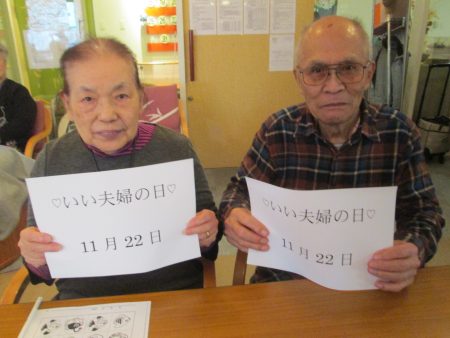 ♡いい夫婦の日♡
11月22日
♡いい夫婦の日♡
11月22日